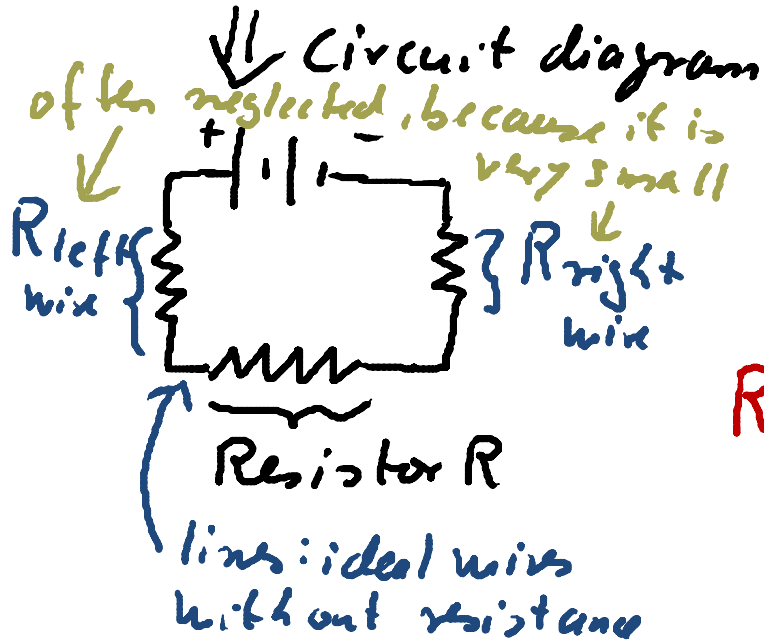 Circuit diagram
often neglected, because it is
very small
+ -
R left
wire
R right
wire
R
Resistor R
lines: ideal wires
without resistance